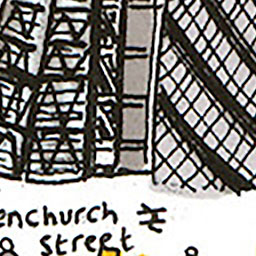 enchurch
& street &